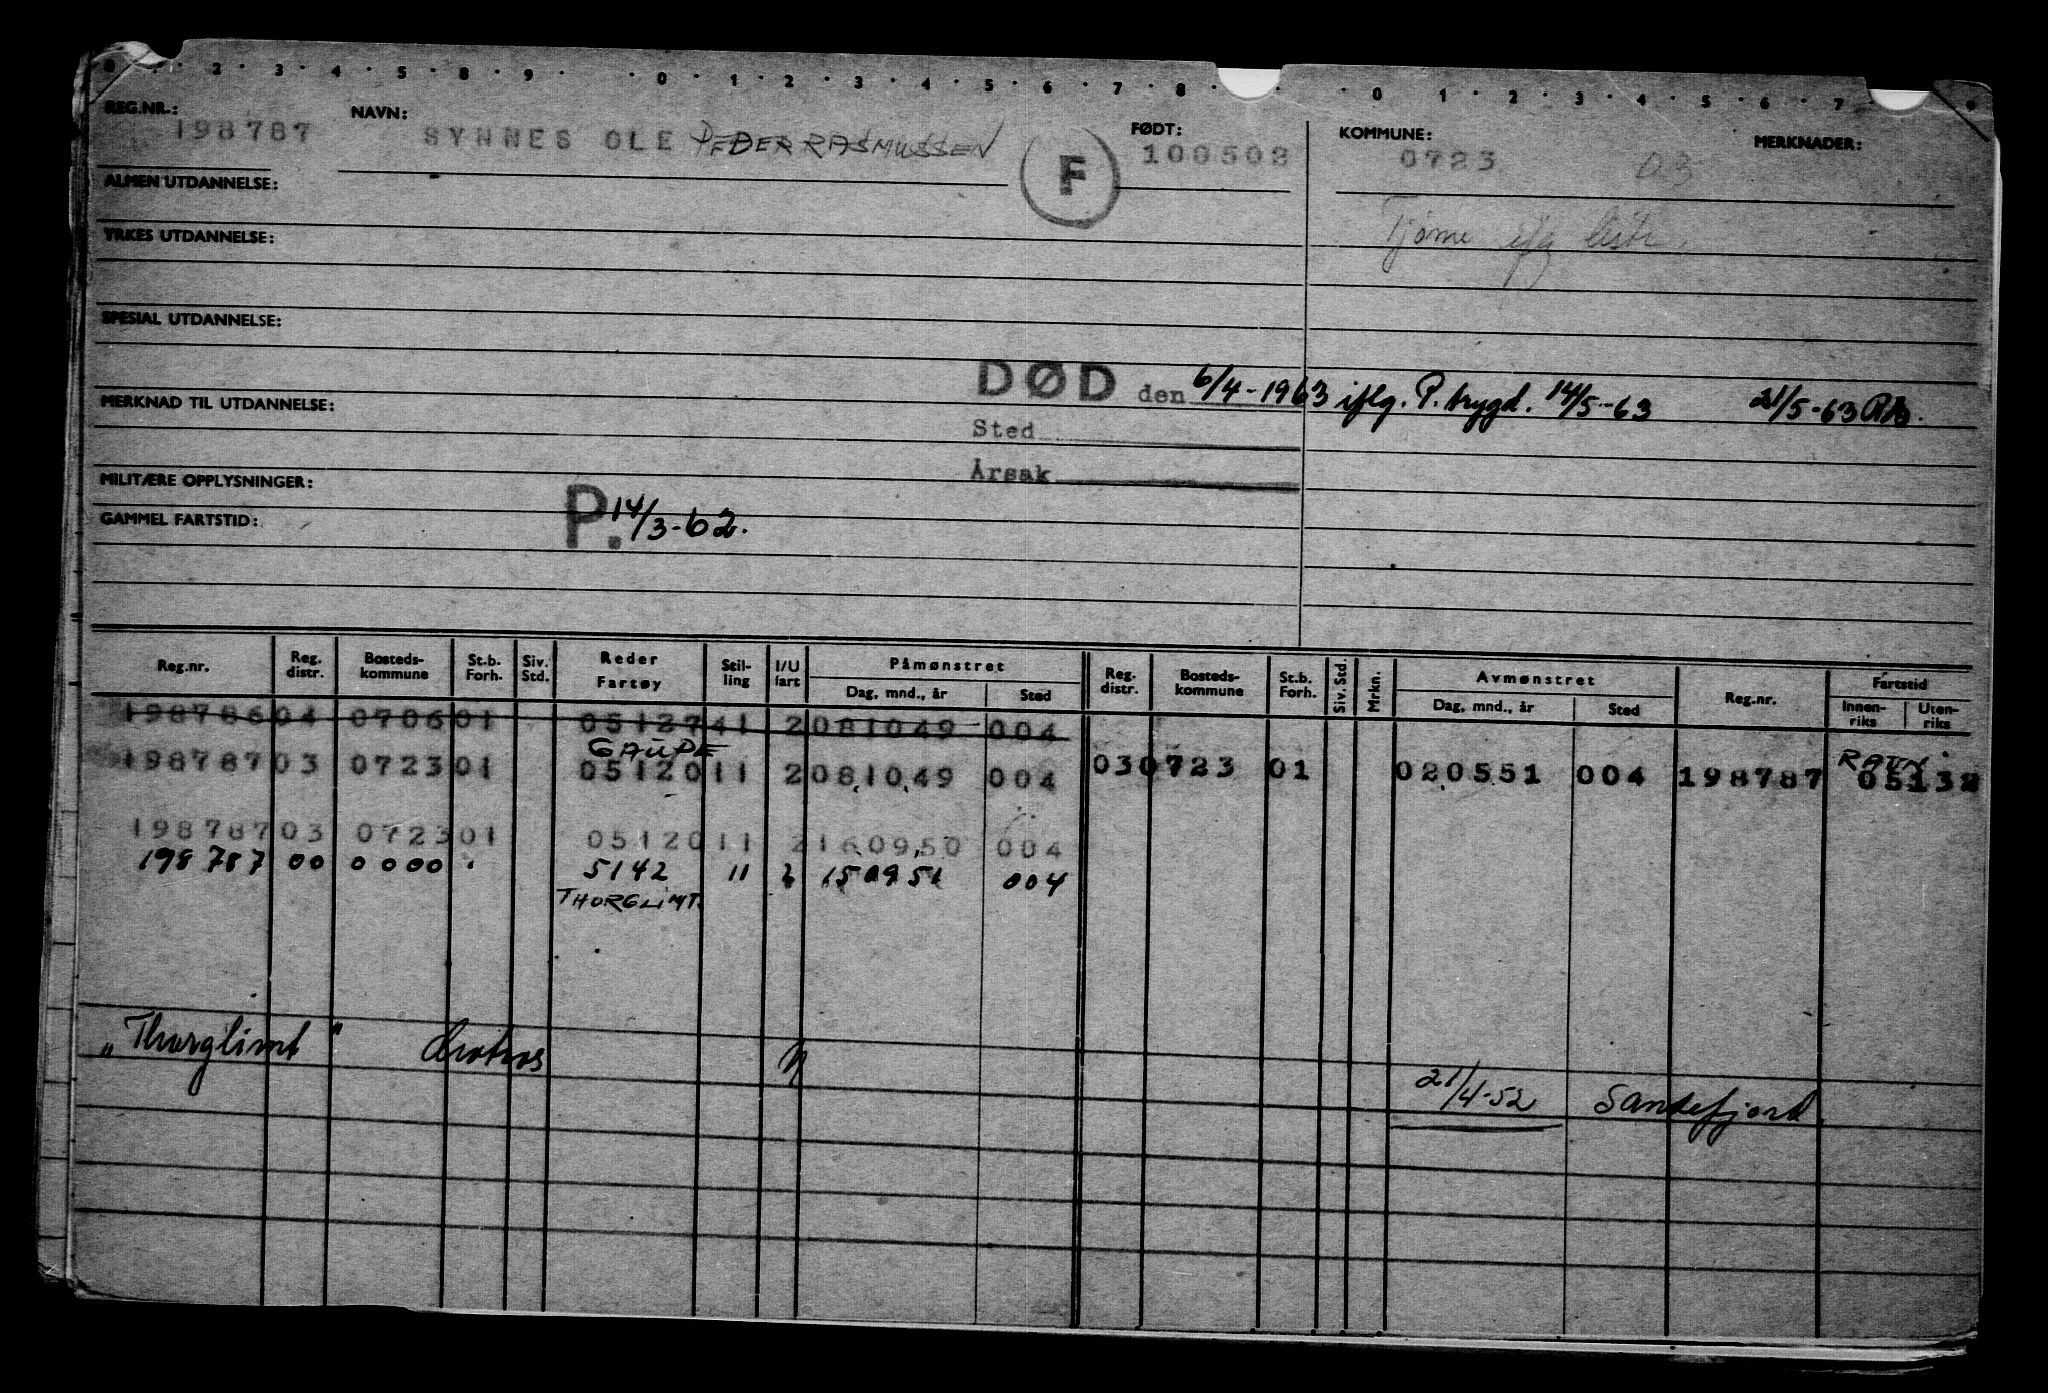 0 . 2 . 3 . 4 . 5 . 8 . 9 . . 0 . 1 . 2 . 3 . 4 . 5 . 6 . 7 . 8 . . 0 . 1 . 2 . 3 . 4 . 5 . 6 . 7 . 9
REG.NR.: 198787 NAVN: SYNNES OLE PEDER RASMUSSEN F FØDT: 100502 KOMMUNE: 0723 03 MERKNADER:
ALMEN UTDANNELSE:
Tjøme iflg liste
YRKES UTDANNELSE:
SPESIAL UTDANNELSE:
DØD den 6/4-1963 iflg. P. trygd. 14/5-63 21/5-63
MERKNAD TIL UTDANNELSE:
Sted
Årsak
MILITÆRE OPPLYSNINGER:
P. 14/3-62.
GAMMEL FARTSTID:
Reg.nr. Reg. distr. Bosteds-kommune St.b. Forh. Siv. Std. Reder Fartøy Stil-ling I/U fart Påmønstret Dag, mnd., år Sted Reg. distr. Bosteds-kommune St.b. Forh. Siv. Std. Mrkn. Avmønstret Dag, mnd., år Sted Reg.nr. Fartstid Innen-riks Uten-riks
198786 04 0706 01 05127 41 2 081049 004
GAUPE
198787 03 0723 01 05120 11 2 081049 004 03 0723 01 020551 004 198787 RAUX 05132
198787 03 0723 01 05120 11 2 160950 004
198 787 00 0000 5142 11 2 150951 004
THORGLIMT.
„Thorglimt" U 21/4-52 Sandefjord.